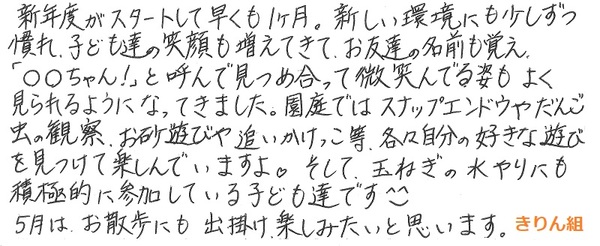 新年度がスタートして早くも1ヶ月。新しい環境にも少しずつ
慣れ、子ども達の笑顔も増えてきて、お友達の名前も覚え、
「〇〇ちゃん!」と呼んで見つめ合って微笑んでる姿もよく
見られるようになってきました。園庭ではスナップエンドウやだんご
虫の観察、お砂遊びや追いかけっこ等、各々自分の好きな遊び
を見つけて楽しんでいますよ。そして、玉ねぎの水やりにも
積極的に参加している子ども達です
5月は、お散歩にも出掛け、楽しみたいと思います。きりん組